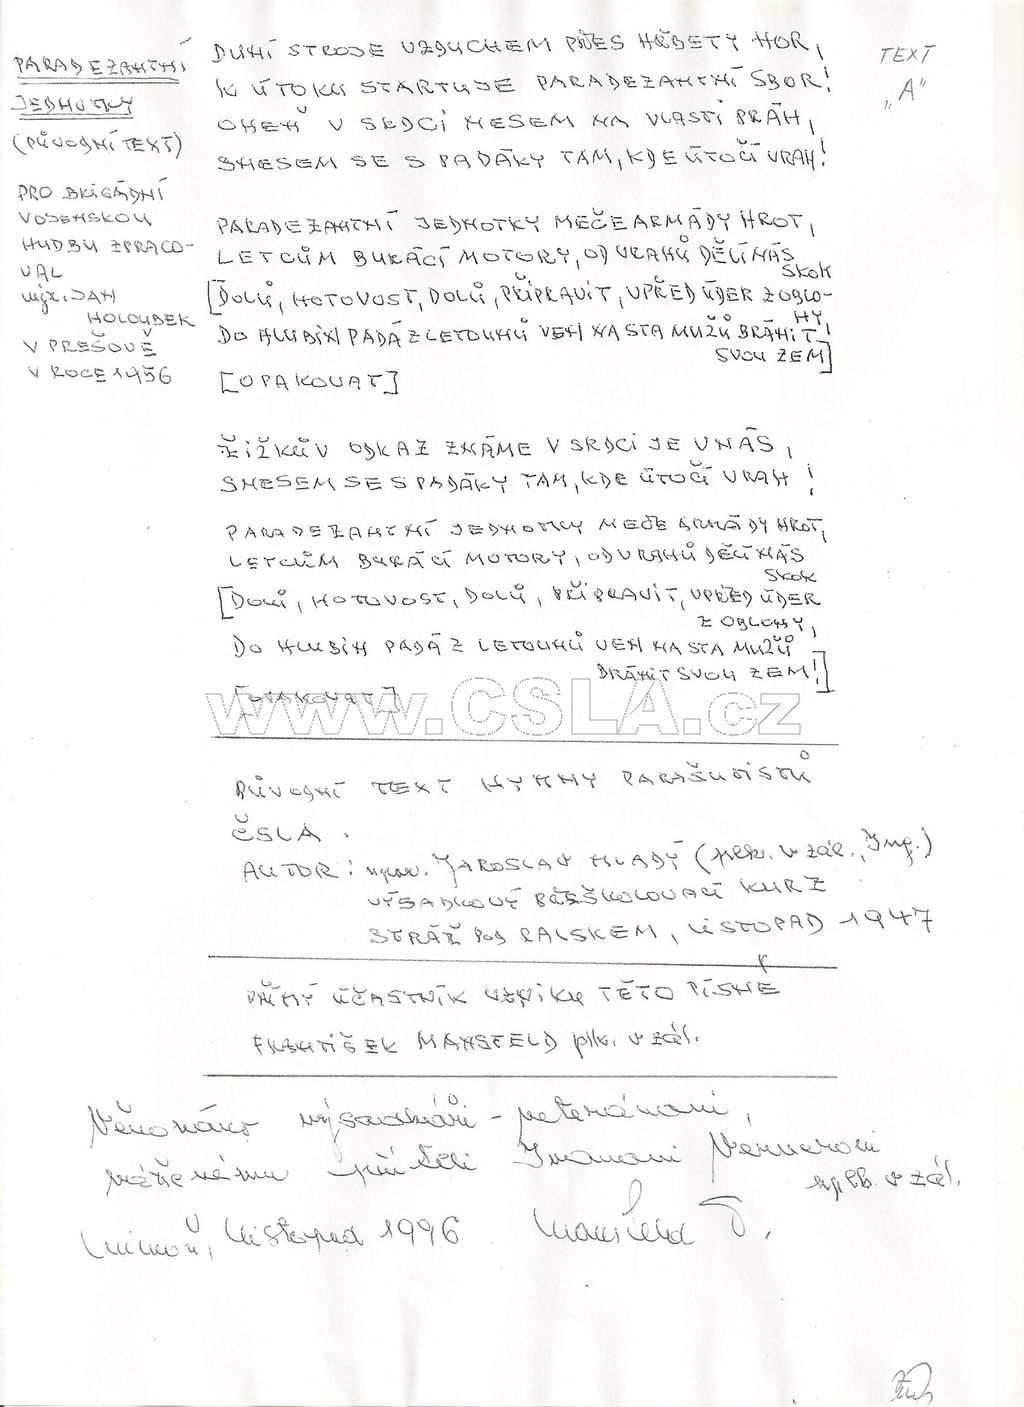 PARADEZANTNÍ
JEDNOTKY
(PŮVODNÍ TEXT)
PRO BRIGÁDNÍ
VOJENSKOU
HUDBU ZPRACO-
VAL
mjr. JAN
HOLOUBEK
V PREŠOVĚ
V ROCE 1956
TEXT
„A"
DUNÍ STROJE VZDUCHEM PŘES HŘBETY HOR,
K ÚTOKU STARTUJE PARADEZANTNÍ SBOR!
OHEŇ V SRDCI NESEM NA VLASTI PRÁH,
SNESEM SE S PADÁKY TAM, KDE ÚTOČÍ VRAH!
PARADEZANTNÍ JEDNOTKY MEČE ARMÁDY HROT,
LETCŮM BURÁCÍ MOTORY, OD VRAHŮ DĚLÍ NÁS
SKOK
[DOLŮ, HOTOVOST, DOLŮ, PŘIPRAVIT, VPŘED ÚDER Z OBLO-
HY,
DO HLUBIN PADÁ Z LETOUNŮ VEN NA STA MUŽŮ BRÁNIT
SVOU ZEM!]
[OPAKOVAT]
ŽIŽKŮV ODKAZ ZNÁME V SRDCI JE V NÁS,
SNESEM SE S PADÁKY TAM, KDE ÚTOČÍ VRAH!
PARADEZANTNÍ JEDNOTKY MEČE ARMÁDY HROT,
LETCŮM BURÁCÍ MOTORY, OD VRAHŮ DĚLÍ NÁS
SKOK
[DOLŮ, HOTOVOST, DOLŮ, PŘIPRAVIT, VPŘED ÚDER
Z OBLOHY,
DO HLUBIN PADÁ Z LETOUNŮ VEN NA STA MUŽŮ
BRÁNIT SVOU ZEM!]
[OPAKOVAT]
www.CSLA.cz
PŮVODNÍ TEXT HYMNY PARAŠUTISTŮ
ČSLA.
AUTOR: npor. JAROSLAV MLADÝ (plk. v zál., Ing.)
VÝSADKOVÝ PŘEŠKOLOVACÍ KURZ
STRÁŽ POD RALSKEM, LISTOPAD 1947
PŘÍMÝ ÚČASTNÍK VZNIKU TÉTO PÍSNĚ
FRANTIŠEK MANSFELD plk. v zál.
Věnováno výsadkáři - veteránovi,
váženému příteli Ivanovi
v zál.
Mimoň, listopad 1996 Mansfeld F.